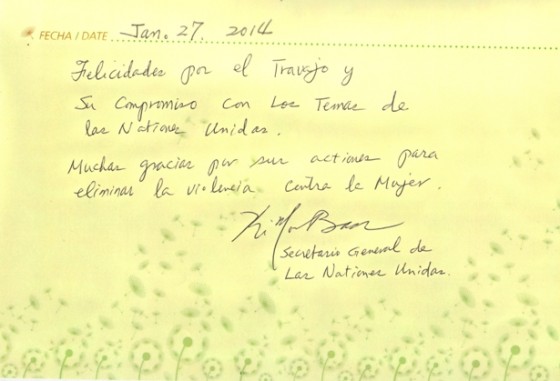 FECHA / DATE Jan. 27. 2014
Felicidades por el Travajo y
Su Compromiso con Los Temas de
las Nationes Unidas.
Muchas gracias por sus actiones para
eliminar la violencia contra la Mujer.
Ki Moon Ban
Secretario General de
Las Nationes Unidas.